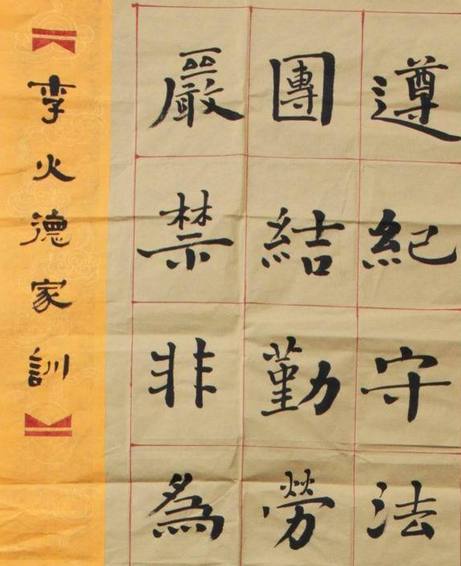 遵紀守法
團結勤勞
嚴禁非為
李火德家訓